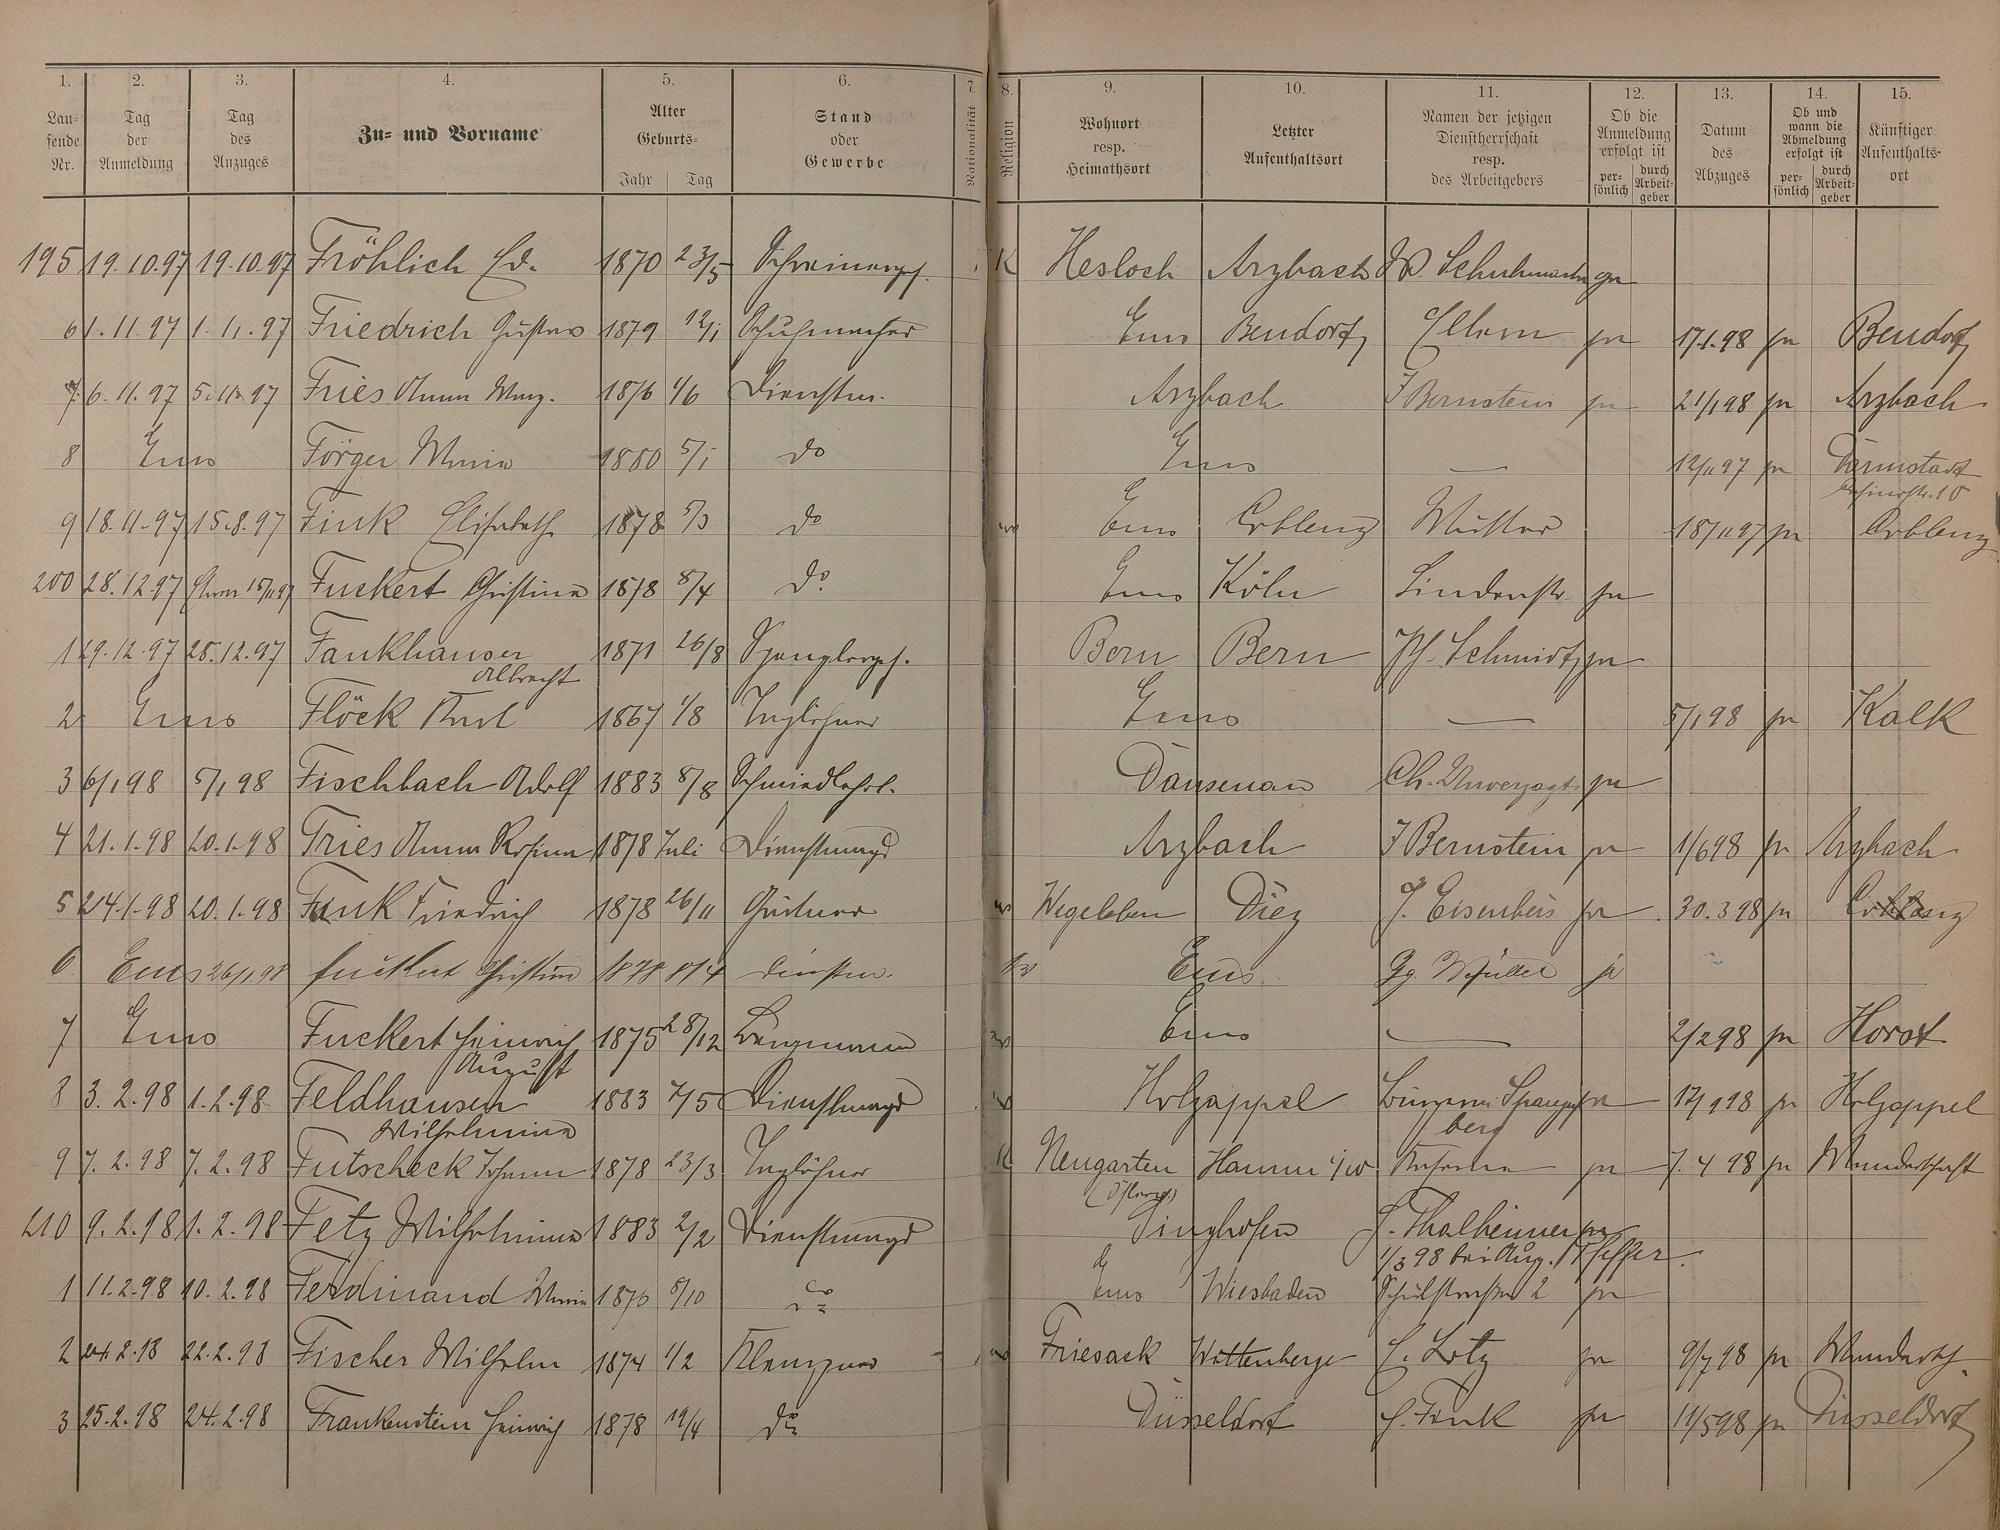 1. 2. 3. 4. 5. 6. 7. 8. 9. 10. 11. 12. 13. 14. 15.
Laufende Nr. Tag der Anmeldung Tag des Anzuges Zu- und Vorname Alter Geburts- Jahr Tag Stand oder Gewerbe Nationalität Religion Wohnort resp. Heimathsort Letzter Aufenthaltsort Namen der jetzigen Dienstherrschaft resp. des Arbeitgebers Ob die Anmeldung erfolgt ist persönlich durch Arbeitgeber Datum des Abzuges Ob und wann die Abmeldung erfolgt ist persönlich durch Arbeitgeber Künftiger Aufenthaltsort
195 19.10.97 19.10.97 Fröhlich Ed. 1870 23/5 Schreinergs. K Hesloch Arzbach Schuhmacher
6 1.11.97 1.11.97 Friedrich Gustav 1879 12/1 Schuhmacher Ems Bendorf Ellern pr 17.1.98 pr Bendorf
7 6.11.97 5.11.97 Fries Anna Marg. 1876 1/6 Dienstm. Arzbach J Bernstein pr 21/1 98 pr Arzbach
8 Ems Förger Maria 1880 5/1 do Ems — 12/11 97 pr Darmstadt
9 18.11.97 15.8.97 Fink Elisabeth 1878 5/3 do Ems Coblenz Mutter 18/11 97 pr Coblenz
200 28.12.97 15/11 97 Fuckert Christina 1878 8/4 do Ems Köln Lindenstr. pr
1 29.12.97 28.12.97 Fankhauser Albrecht 1871 26/8 Spenglergs. Bern Bern Ph. Schmidt pr
2 Ems Flöck Karl 1867 1/8 Taglöhner Ems — 5/1 98 pr Kalk
3 6/1 98 5/1 98 Fischbach Adolf 1883 8/8 Schmiedlehrl. Dausenau Ch. Unverzagt pr
4 21.1.98 20.1.98 Fries Anna Rosina 1878 Juli Dienstmagd Arzbach J Bernstein pr 1/6 98 pr Arzbach
5 24.1.98 20.1.98 Funk Friedrich 1878 26/11 Gärtner Wegeleben Diez J. Eisenbeis pr 30.3 98 pr Coblenz
6 Ems 26/1.98 Fuckert Christine 1878 8/4 Dienstm. Ems Gg. Müller ja
7 Ems Fuckert Heinrich August 1875 28/12 Bergmann Ems — 2/2 98 pr Horst
8 3.2.98 1.2.98 Feldhausen Wilhelmina 1883 7/5 Dienstmagd Holzappel pr 17/9 98 pr Holzappel
9 7.2.98 7.2.98 Futscheck Johann 1878 23/3 Taglöhner K Neugarten Hamm i/w pr 7.4 98 pr Wanderschaft
210 9.2.98 1.2.98 Fetz Wilhelmina 1883 2/2 Dienstmagd Singhofen J. Thalheimer pr
1/3 98 bei Aug. Pfeffer.
1 11.2.98 10.2.98 Ferdinand Maria 1876 5/10 do Ems Wiesbaden Schulstrasse 2 pr
2 24.2.98 22.2.98 Fischer Wilhelm 1874 1/2 Klempner Friesack Wittenberge C. Lotz pr 9/7 98 pr Wandersch.
3 25.2.98 24.2.98 Frankenstein Heinrich 1878 19/4 do Düsseldorf H. Fink pr 11/5 98 pr Düsseldorf